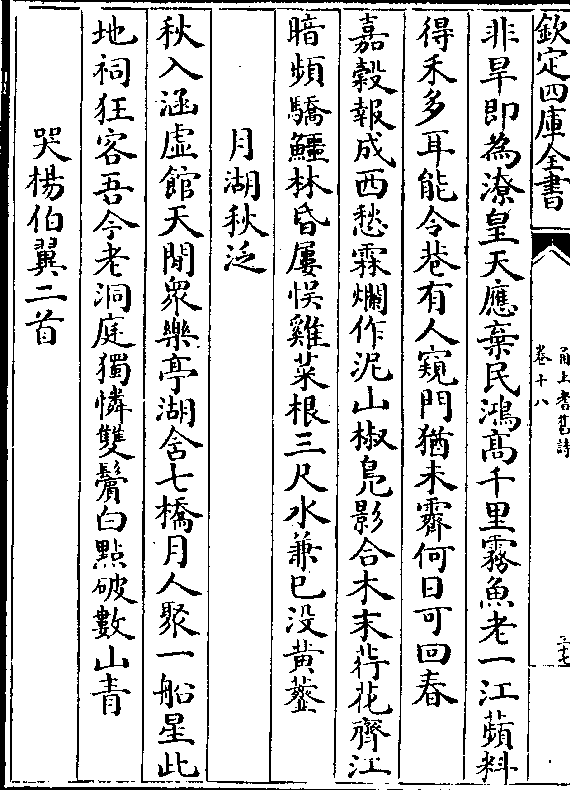 欽定四庫全書
甬上耆舊詩
卷十八
三七
非旱即為潦皇天應棄民鴻髙千里霧魚老一江蘋料
得禾多耳能令巷有人窺門猶未霽何日可回春
嘉穀報成西愁霖爛作泥山椒鳬影合木末荇花齊江
暗頻驕鱷林昏屢悞雞菜根三尺水兼已没黄虀
月湖秋泛
秋入涵虚館天開衆樂亭湖舍七橋月人聚一船星此
地祠狂客吾今老洞庭獨憐雙鬢白點破數山青
哭楊伯翼二首